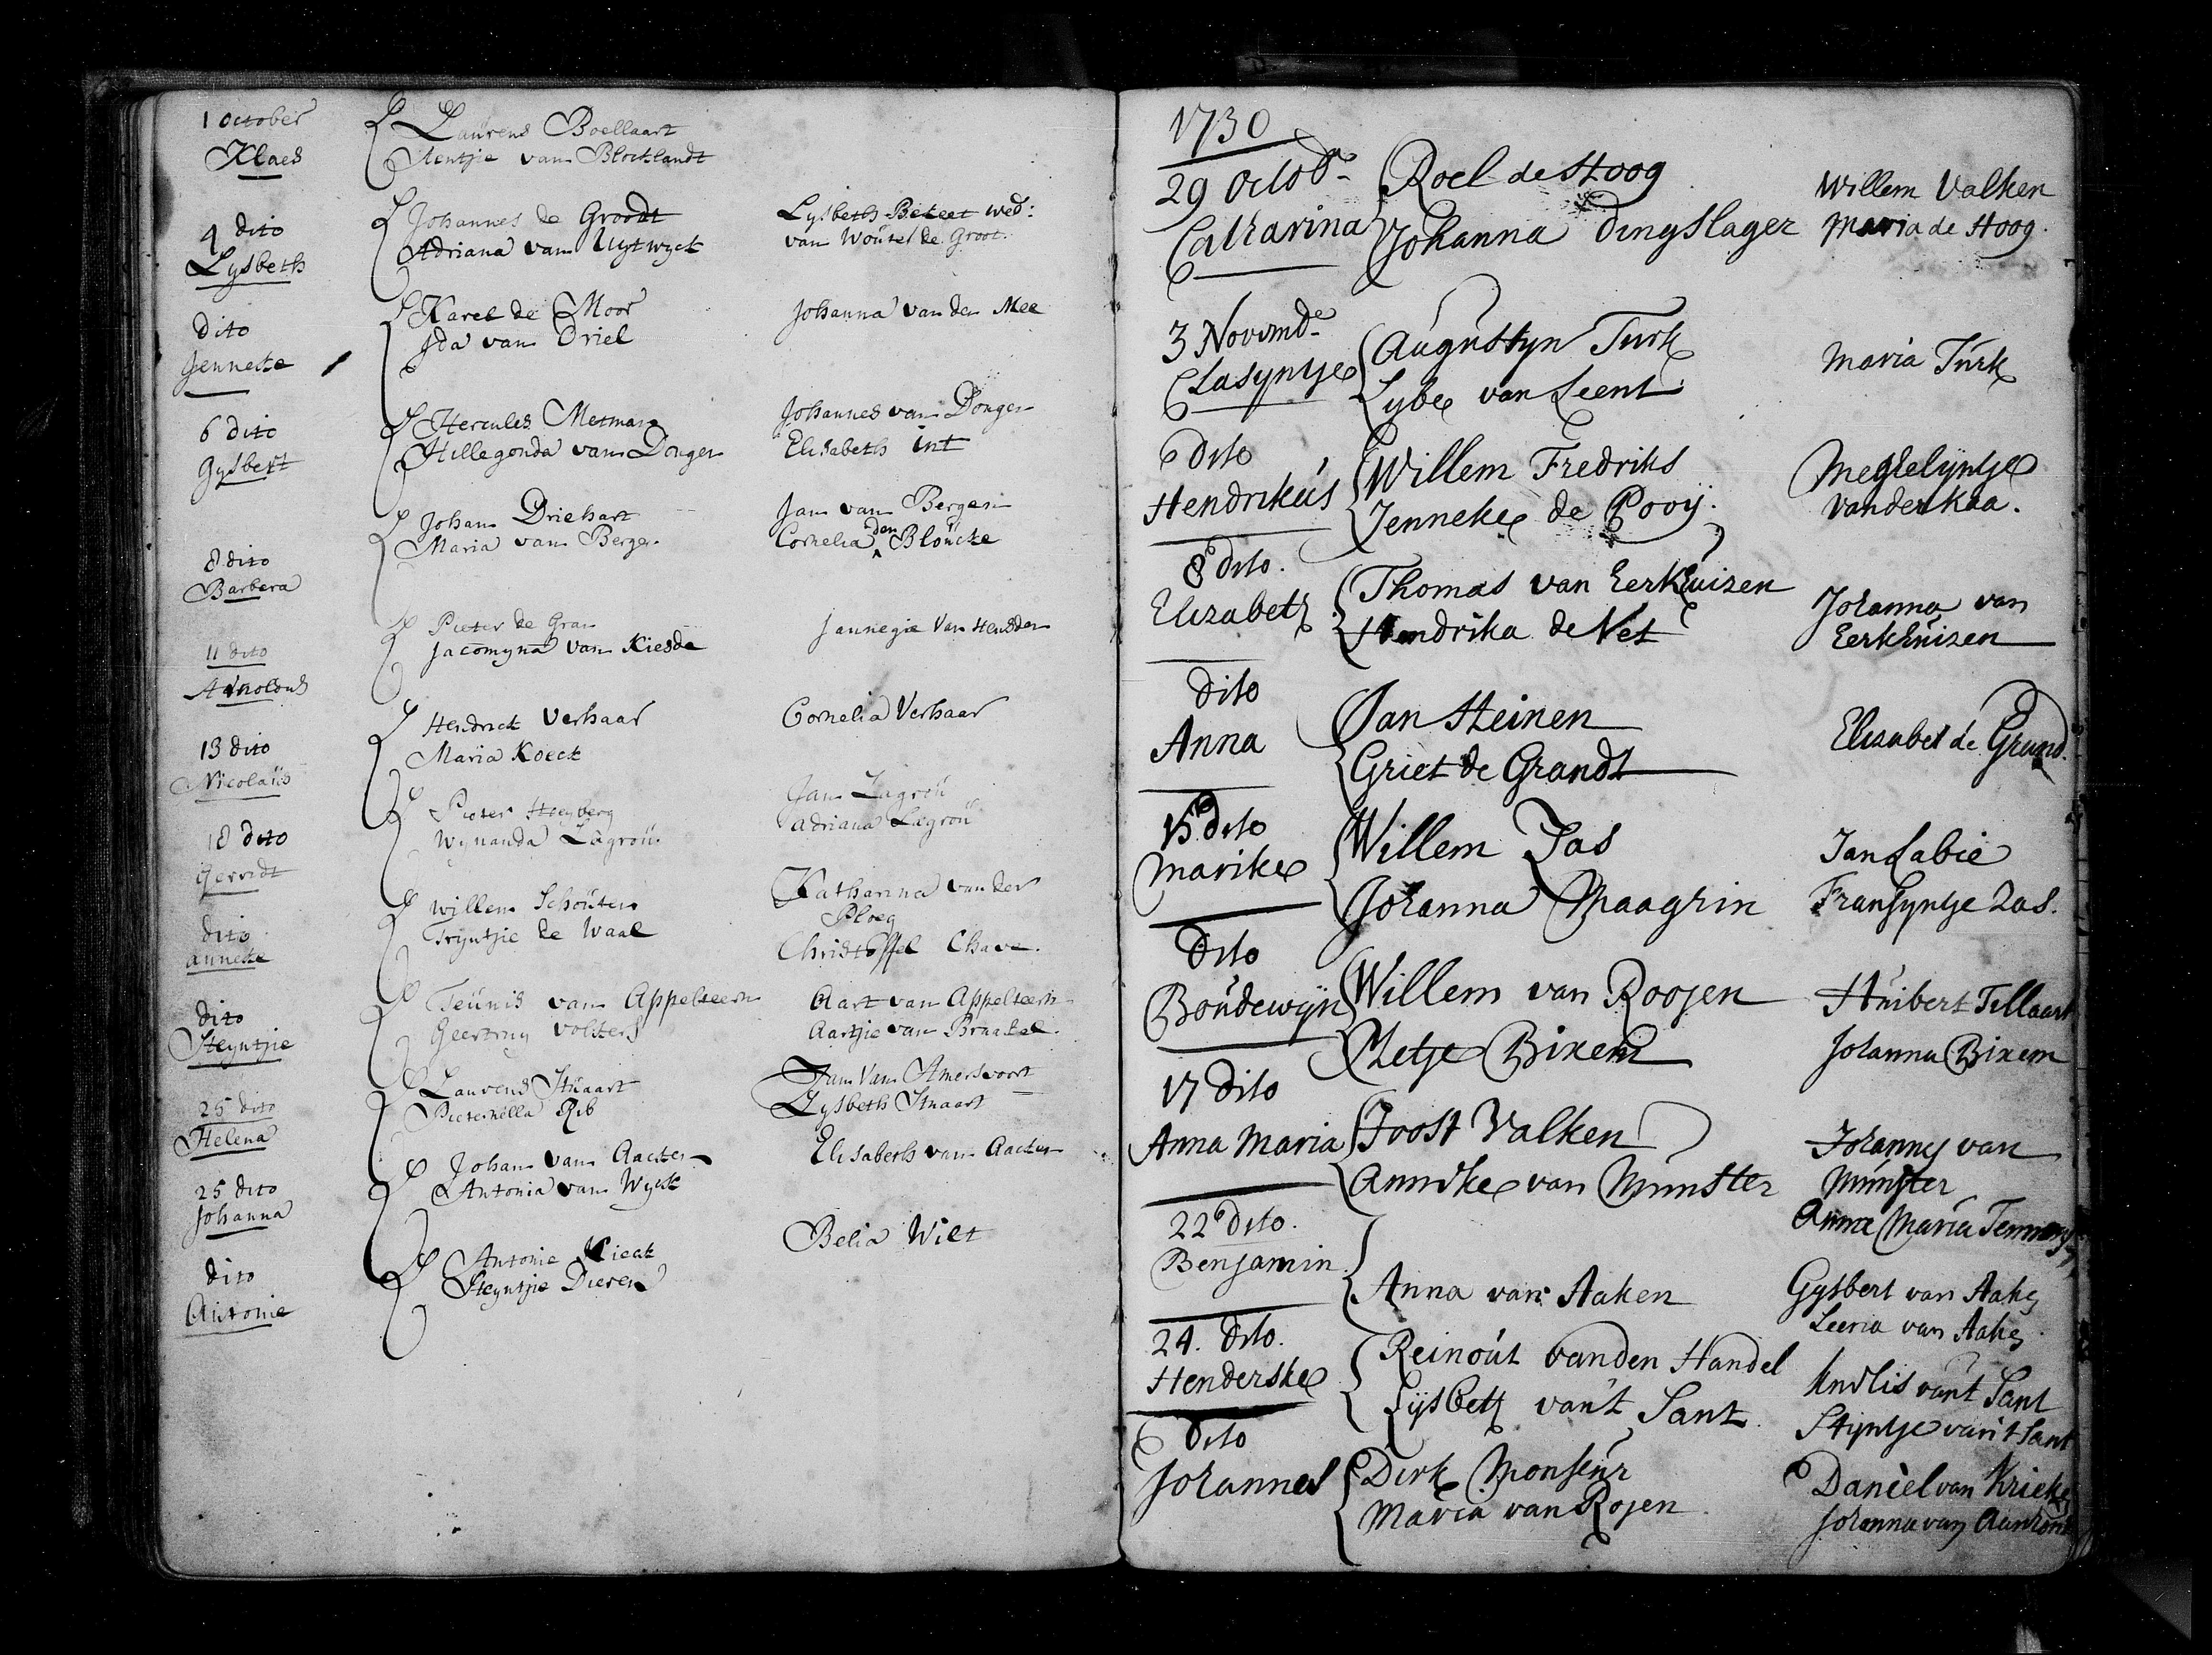 1 October
Klaes
Laurens Boellaart
Aentjie van Blocklandt
4 dito
Lysbeth
Johannes de Groodt
Adriana van Uytwyck
Lysbeth Bekeet wed:
van Wouter de Groot.
dito
Jenneke
Karel de Moor
Ida van Driel
Johanna van der Mee
6 dito
Gysbert
Hercules Metman
Hillegonda van Dongen
Johannes van Dongen
Elisabeth int
8 dito
Barbera
Johan Driehart
Maria van Bergen
Jan van Bergen
Cornelia den Bloücke
11 dito
Arnoldus
Pieter de Graa
Jacomyna van Kiesde
Jannegie van Heusden
13 dito
Nicolaüs
Hendrick Verhaar
Maria Koeck
Cornelia Verhaar
18 dito
Gerridt
Pieter Heyberg
Wynanda Lagroü
Jan Lagroü
Adriana Lagroü
dito
anneke
Willem Schoüten
Tryntjie de Waal
Katharina van der
Ploeg
Christoffel Chave.
dito
Steyntjie
Teünis van Appelteern
Geertruy Volsters
Aart van Appelteern
Aartjie van Braakel.
25 dito
Helena
Laurens Stuaart
Pieternella Rib
Jan van Amersvoort
Lysbeth Stuaart
25 dito
Johanna
Johan van Aacken
Antonia van Wyck
Elisabeth van Aacken
dito
Antonie
Antonie Kieck
Steyntjie Dieren
Belia Wilt
1730
29 Octobr
Catharina
Roel de Hoog
Johanna Dingslager
Willem Valken
Maria de Hoog.
3 Novemb
Clasyntje
Augustyn Turk
Lybe van Leent
Maria Turk
6 dito
Hendrikus
Willem Fredriks
Jenneke de Rooij.
Megtelijntje
vander Kaa.
8 dito.
Elizabeth
Thomas van Eerkhuizen
Hendrika de Vet
Johanna van
Eerkhuizen
dito
Anna
Jan Heinen
Griet de Grandt
Elizabet de Grand.
15 dito
Marike
Willem Jas
Johanna Maagrin
Jan Labie
Fransyntje Jas.
dito
Boudewijn
Willem van Roojen
Metje Bixem
Huibert Tillaart
Johanna Bixem
17 dito
Anna Maria
Joost Valken
Anneke van Munster
Johannes van
Munster
Anna Maria
22 dito.
Benjamin
Anna van Aaken
Gysbert van Aaken
Leena van Aaken
24. dito.
Henderske
Reinout vanden Handel
Lijsbeth van't Sant
Andlis van't Sant
Stijntje van't Sant
dito
Johannes
Dirk Monseur
Maria van Rojen
Daniel van Krieken
Johanna van